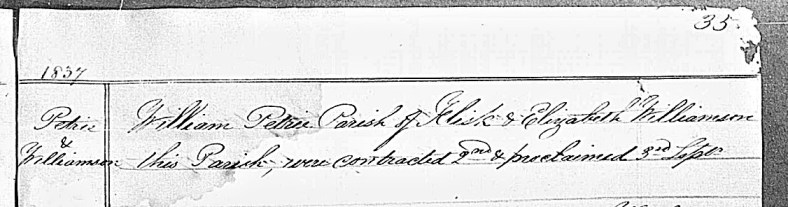 35
1837
Petrie William Petrie Parish of Flisk & Elizabeth Williamson
&
Williamson this Parish, were contracted 2nd & proclaimed 3rd Sept